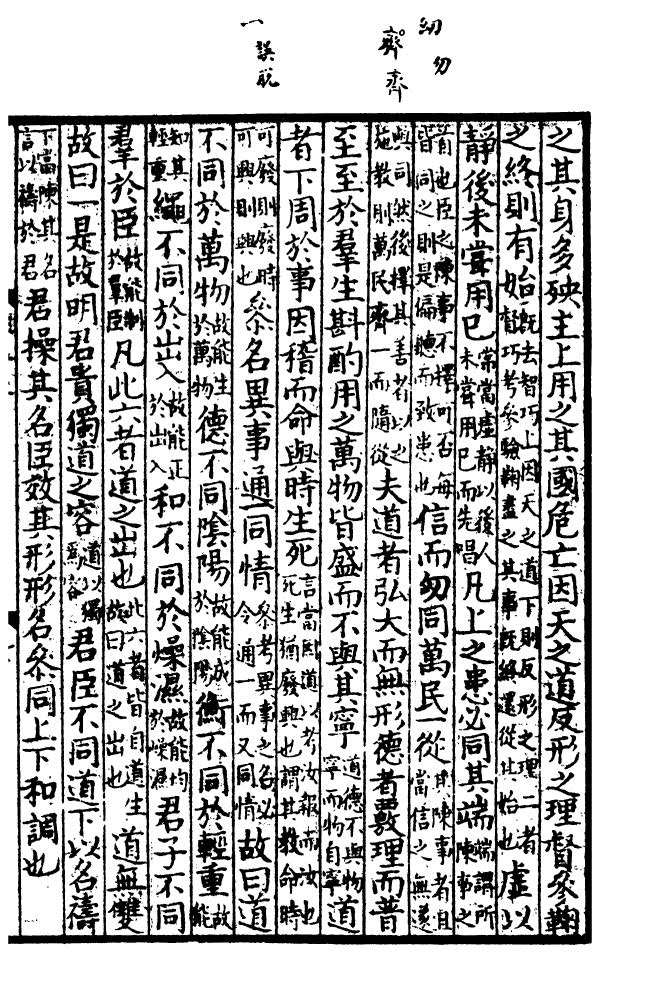 紉勿
齊齊
一誤脫
之其身多殃主上用之其國危亡因天之道反形之理督參鞠
之終則有始既去智巧上因天之道下則反形之理二者督巧考參驗鞠盡之其事既終還從其始也虛以
靜後未嘗用已常當虛靜以後人未嘗用已而先唱凡上之患必同其端端謂所陳事之
首也臣之陳事不擇可否每皆同之則是偏聽而致患也信而勿同萬民一從其陳事者且當信之無遂
與同然後擇其善者以之施教則萬民齊一而隨從夫道者弘大而無形德者覈理而普
至至於羣生斟酌用之萬物皆盛而不與其寧道德不與物寧而物自寧道
者下周於事因稽而命與時生死言當因道以考汝報而汝也死生猶廢興也謂其教命時
可廢則廢時可興則興也參名異事通一同情參考異事之名必令通一而又同情故曰道
不同於萬物故能生於萬物德不同陰陽故能成於陰陽衡不同於輕重故能
知其輕重繩不同於出入故能正於出入和不同於燥濕故能均於燥濕君子不同
羣於臣故能制於羣臣凡此六者道之出也此六者皆自道生故曰道之出也道無雙
故曰一是故明君貴獨道之容道以獨為容君臣不同道下以名禱
下當陳其名言以禱於君君操其名臣效其形形名參同上下和調也